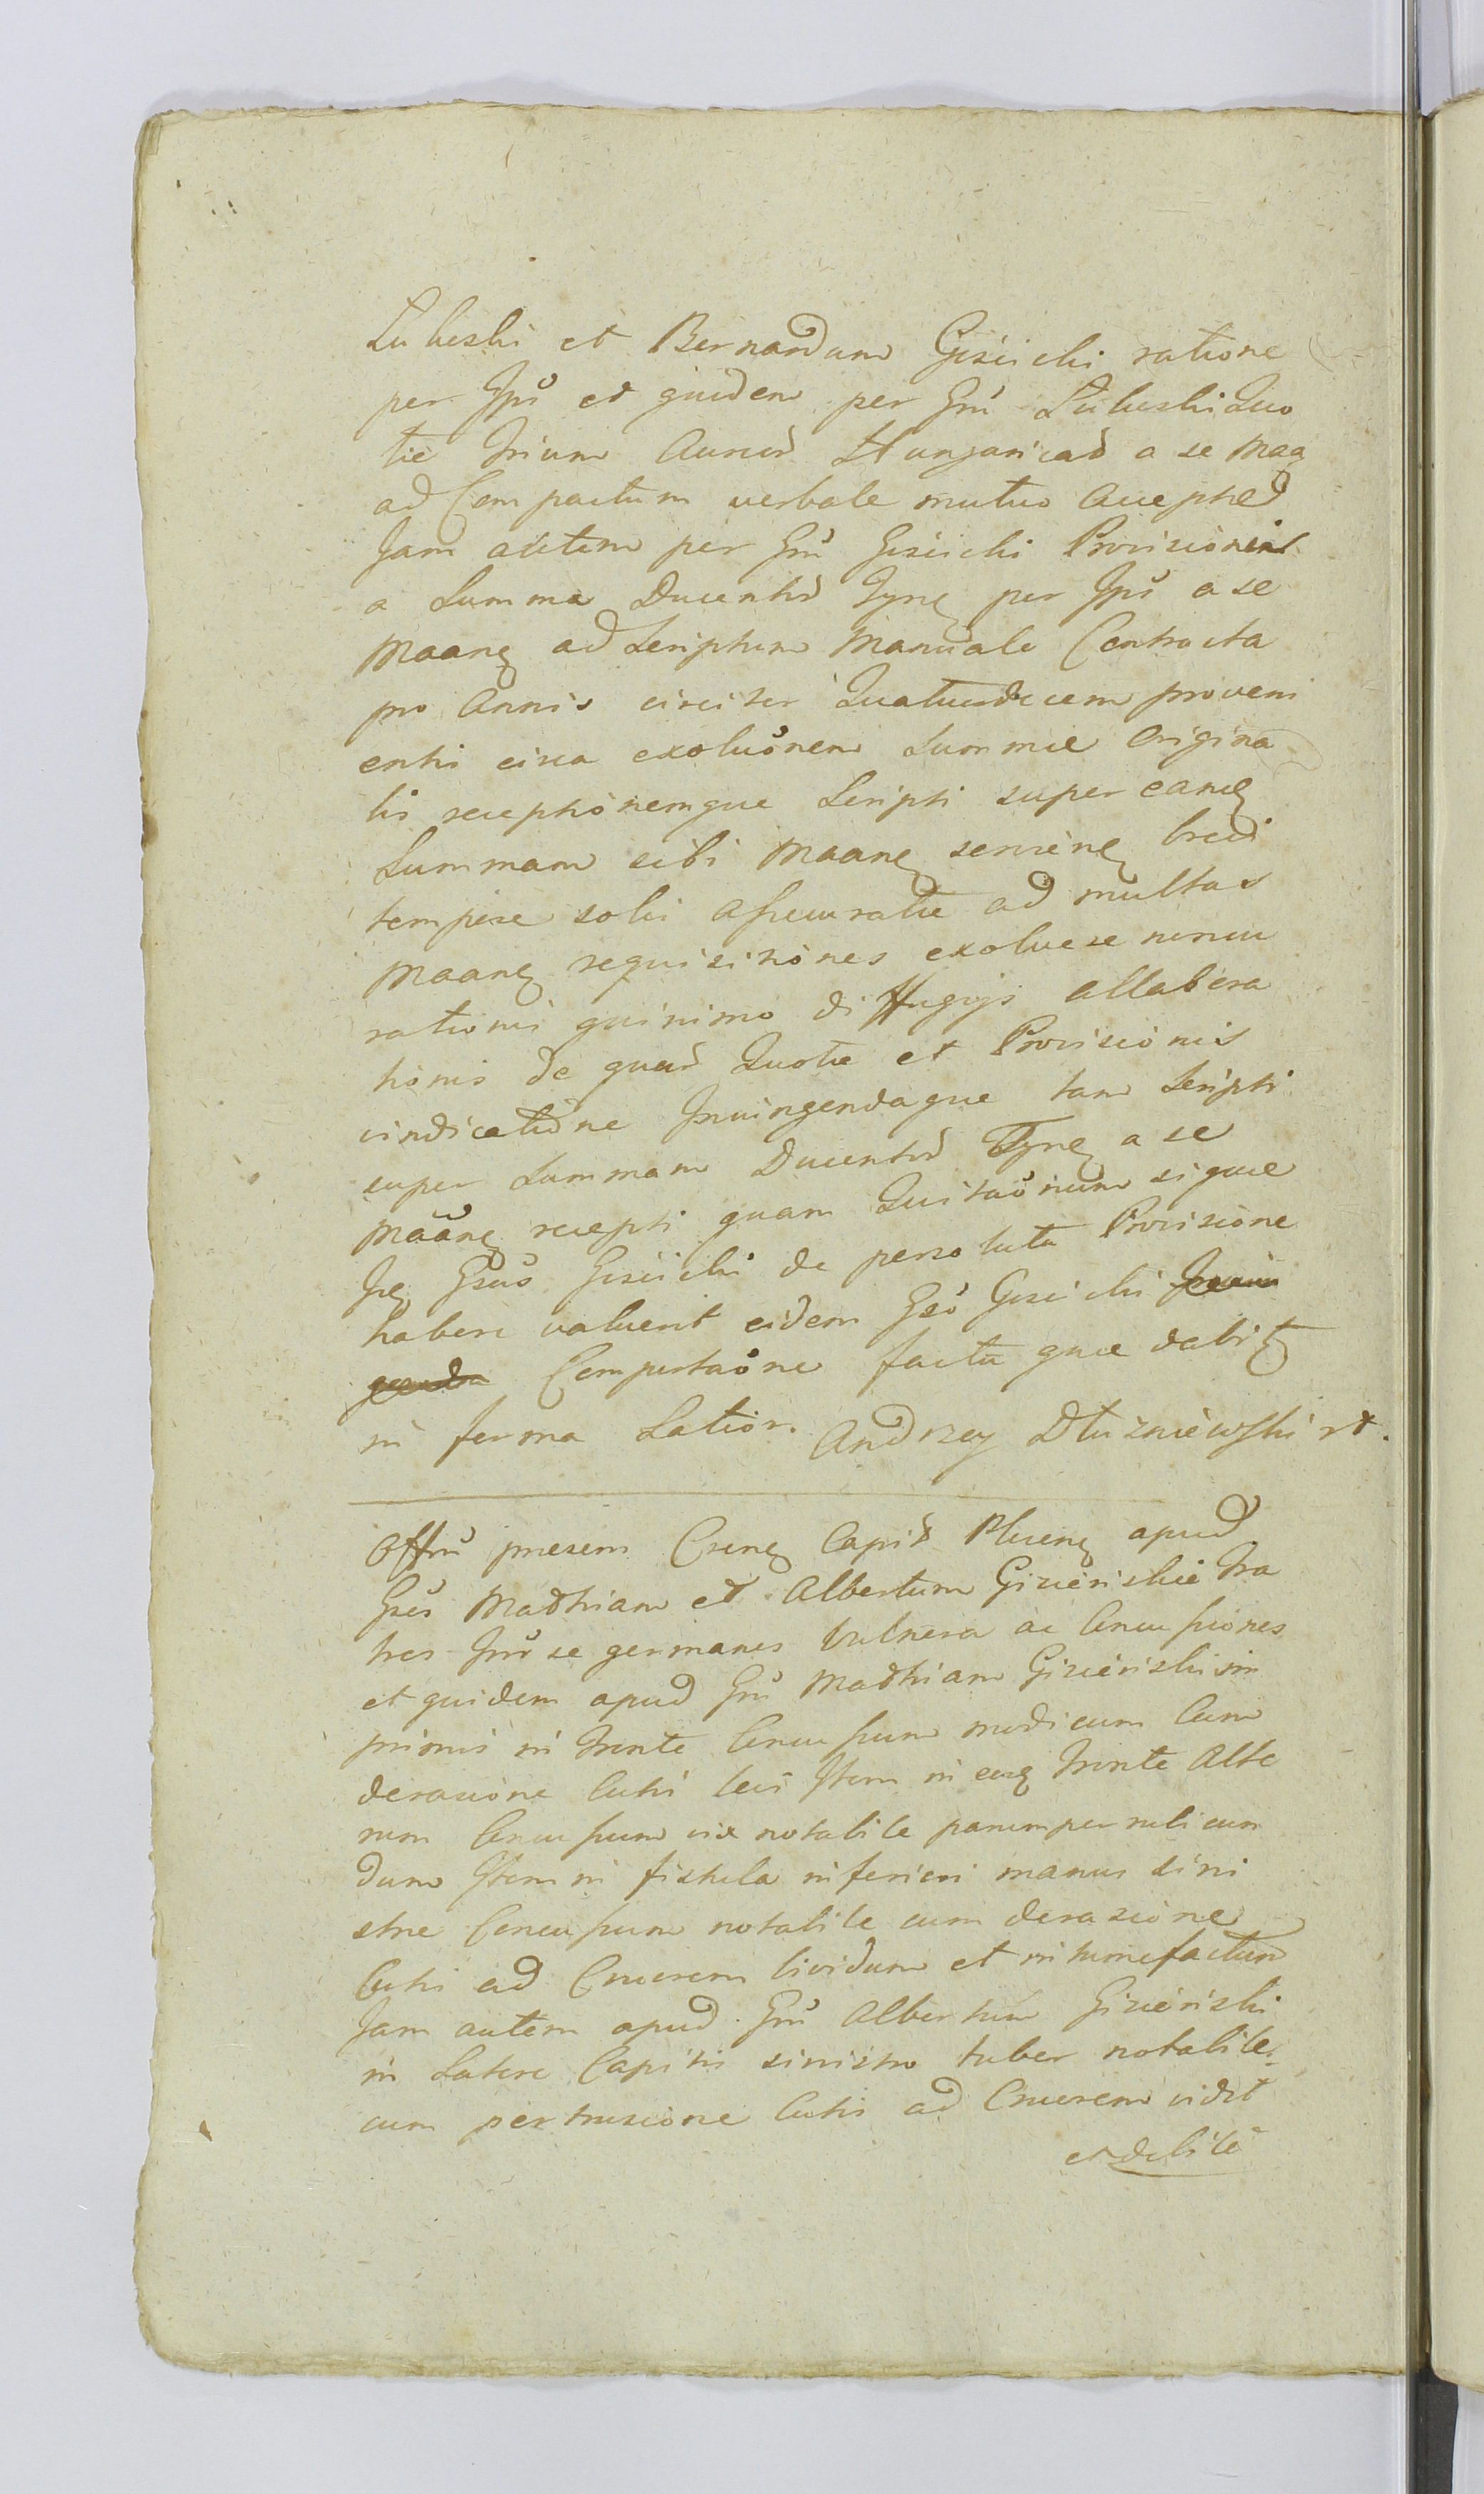 Lubieski et Bernardum Gizicki ratione
per Ipsū et quidem per Gnū Lubieski Quo
tæ Trium Aureor̄ Hungaricaď a se Maa
ad Compactum verbale mutuo accepted
Jam autem per Gnū Gizicki Provisionis
a Summa Ducentor̄ Tynf per Ipsū a se
Maang ad Scriptum Manuale Contracta
pro Annis circiter Quatuordecem proveni
enti circa exoluõnem Summæ Origina
lis receptionemque Scripti super eand
Summam sibi Maang servieng brevi
tempore solvi assecuratæ ad multas
Maang requisitiones exoluere
rationis quinimo diffugijs
de quar̄ Quotæ et Provisionis
vindicatione Iniungendaque tam Scripti
super Summam Ducentor̄ Tynf a se
Maang recepti quam Quitaõnum siquæ
Gizicki de persoluta Provisione
habere valuerit eidem Gizicki
Comportaõne facta quæ dabit
in forma Latiori. Andrzey Dłużniewski
Offm̃ præsens Crense Capit Plicense apud
Matthiam et Albertum Giziński Fra
tres inter se germanos Vulnera ac Concussiones
et quidem apud Gnū Matthiam Giziński in
primis in fronte Concussum modicum Cum
derasione Cutis Item in fronte Alte
rum Concussum vix notabile parumper rubicun
dum Item in fistula inferiori manus sini
stræ Concussum notabile cum derasione
Cutis ad Cruorem lividum et intumefactum
Jam autem apud Gnū Albertum Giziński
in Latere Capitis sinistro tuber notabile
cum pertrusione Cutis ad Cruorem vidit
et